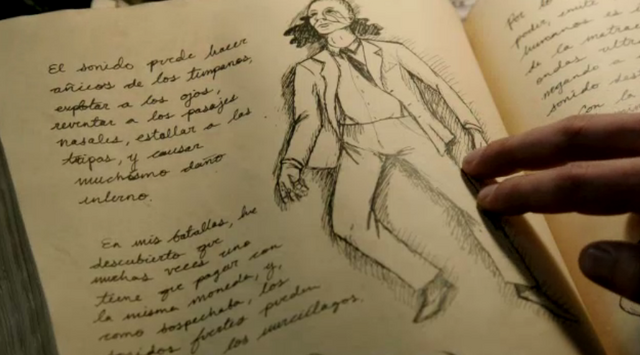 El sonido puede hacer
añicos de los tímpanos,
explotar a los ojos,
reventar a los pasajes
nasales, estallar a las
tripas, y causar
muchísimo daño
interno.
En mis batallas, he
descubierto que
muchas veces uno
tiene que pagar con
la misma moneda, y,
como sospechaba, los
sonidos fuertes pueden
los murciélagos.
Por lo
poder, emite
humanos es
de la matra
ondas ultra
negando a
sonido des
con la